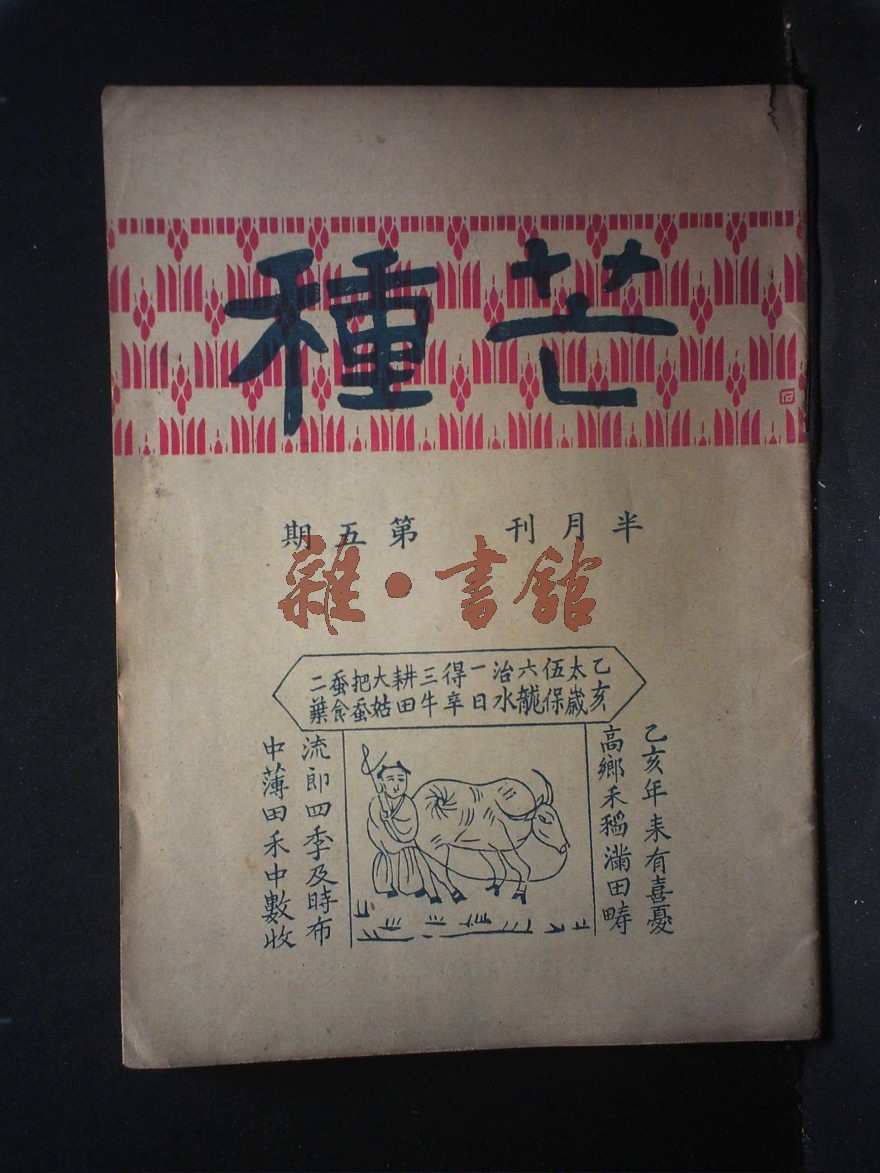 芒種
半月刊 第五期
雜·書館
乙亥太歲伍保六龍治水一日得辛三牛耕田大姑把蚕蚕食二葉
乙亥年来有喜憂
高鄉禾稻滿田疇
流郎四季及時布
中薄田禾中數收